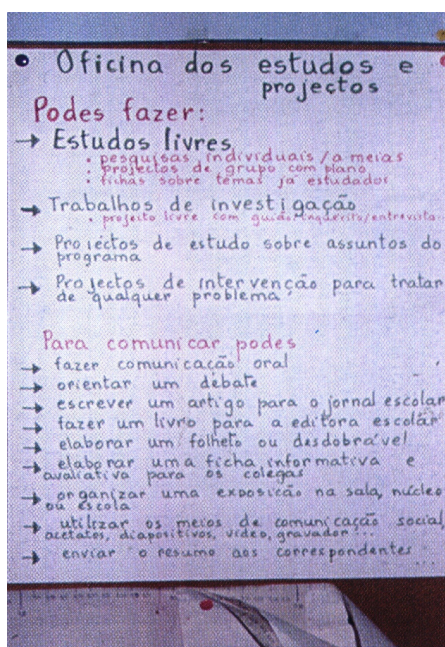 • Oficina dos estudos e
projectos
Podes fazer:
→ Estudos livres
• pesquisas individuais/a meias
• projectos de grupo com plano
• fichas sobre temas já estudados
→ Trabalhos de investigação
• projeito livre com guião, inquérito/entrevista
→ Projectos de estudo sobre assuntos do
programa
→ Projectos de intervenção para tratar
de qualquer problema
Para comunicar podes
→ fazer comunicação oral
→ orientar um debate
→ escrever um artigo para o jornal escolar
→ fazer um livro para a editora escolar
→ elaborar um folheto ou desdobrável
→ elaborar uma ficha informativa e
avaliativa para os colegas
→ organizar uma exposição na sala, núcleo
ou escola
→ utilizar os meios de comunicação social,
acetatos, diapositivos, vídeo, gravador...
→ enviar o resumo aos correspondentes...